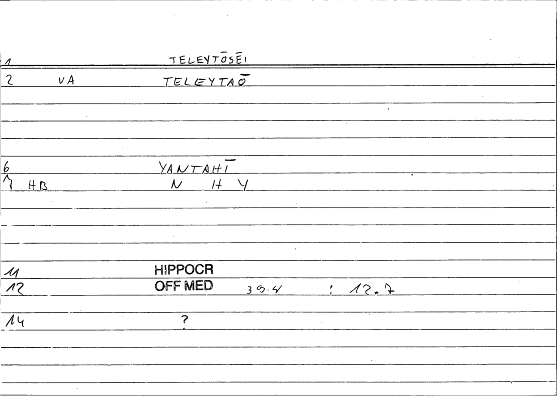 1 TELEYTŌSĒI
2 VA TELEYTAŌ
6 YANTAHĪ
7 HB N H Y
11 HIPPOCR
12 OFF MED 39.4 : 12.7
14 ?